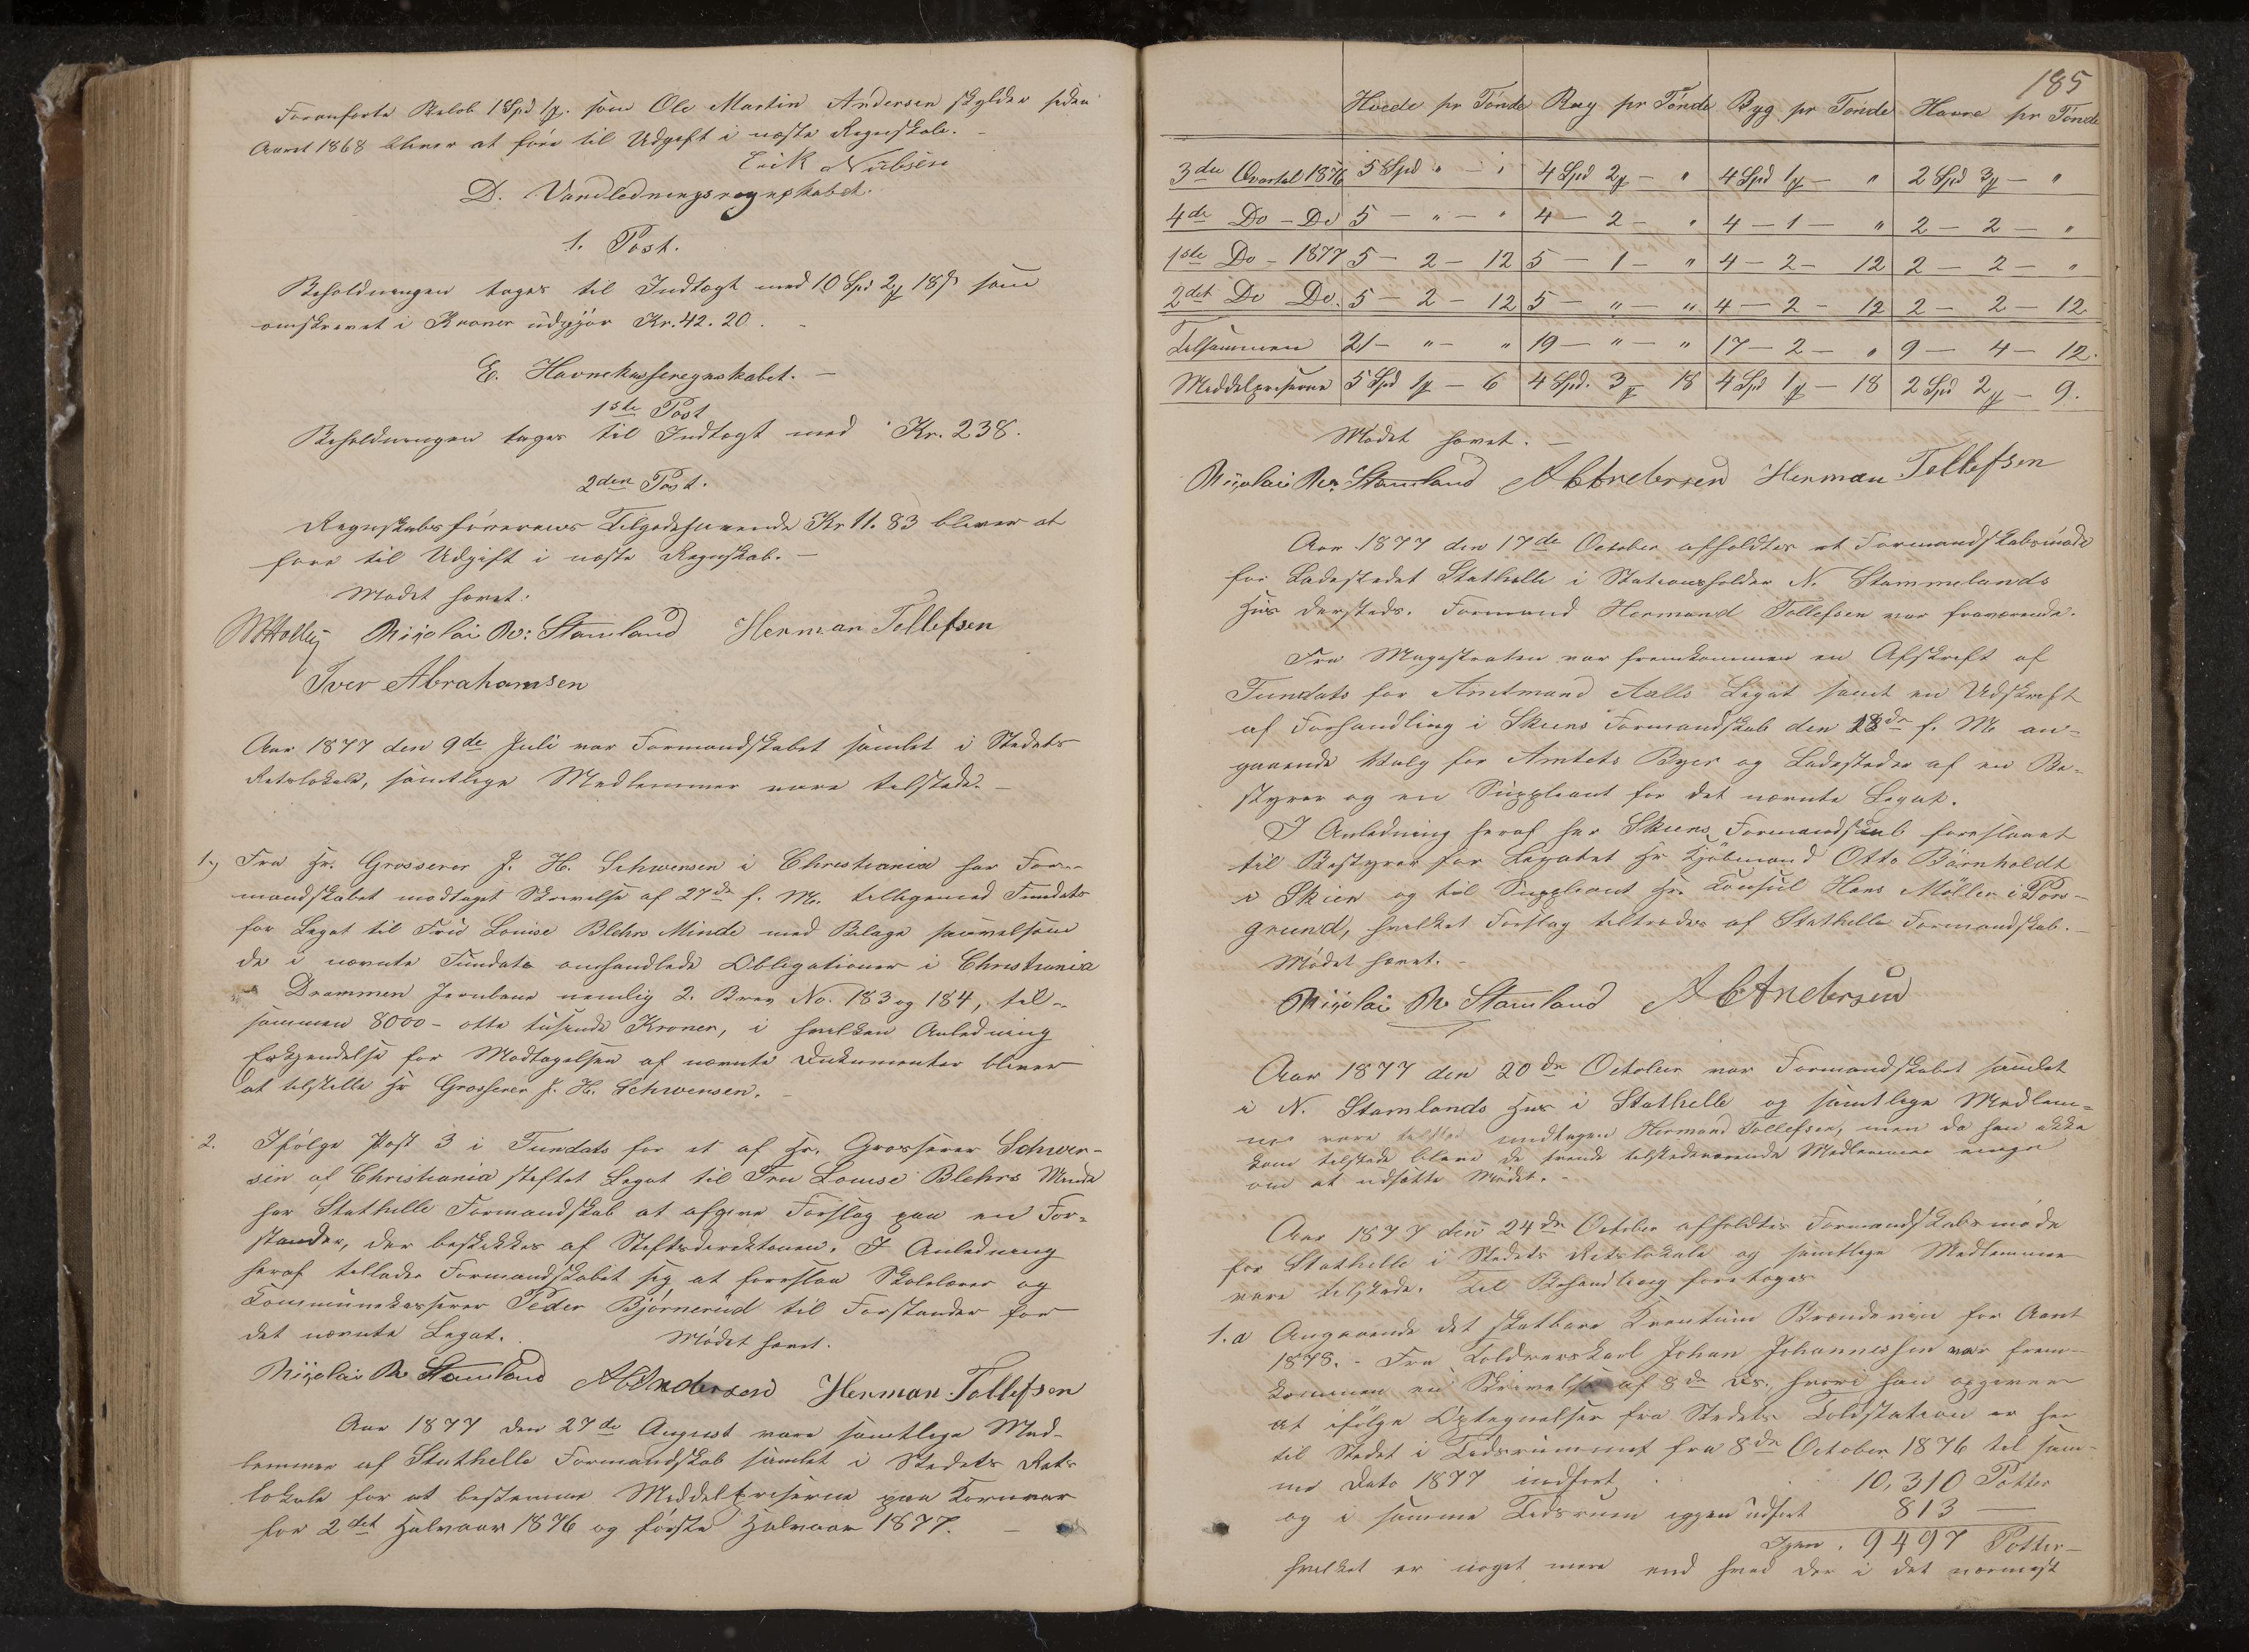 Foranførte Beløb 1 Spd 1 ʒ. som Ole Martin Andersen skylder siden
Aaret 1868 bliver at føre til Udgift i næste Regnskab. –
Erik Nielsen
D. Vandledningsregnskabet.
1. Post.
Beholdningen tages til Indtægt med 10 Spd 2 ʒ 18 ß som
omskrevet i Kroner udgjør Kr. 42.20. –
E. Havnekasseregnskabet. –
1ste Post
Beholdningen tages til Indtægt med Kr. 238.
2den Post.
Regnskabsførerens Tilgodehavende Kr 11.83 bliver at
føre til Udgift i næste Regnskab. –
Mødet hævet.
Nicolai Stamland Herman Tollefsen
Iver Abrahamsen
Aar 1877 den 9de Juli var Formandskabet samlet i Stedets
Retslokale, samtlige Medlemmer vare tilstede. –
1.) Fra Hr. Grosserer J. H. Schwensen i Christiania har For-
mandskabet modtaget Skrivelse af 27de f. M. tilligemed Fundats
for Legat til Fru Louise Blehrs Minde med Bilage saavelsom
de i nævnte Fundats omhandlede Obligationer i Christiania
Drammen Jernbane nemlig 2. Brev No. 183 og 184, til-
sammen 8000 – otte tusinde Kroner, i hvilken Anledning
Erkjendelse for Modtagelsen af nævnte Dokumenter bliver
at tilstille Hr Grosserer J. H. Schwensen. –
2. Ifølge Post 3 i Fundats for et af Hr. Grosserer Schwen-
sen af Christiania stiftet Legat til Fru Louise Blehrs Minde
har Stathelle Formandskab at afgive Forslag paa en For-
stander, der beskikkes af Stiftsdirektionen. I Anledning
heraf tillader Formandskabet sig at foreslaa Skolelærer og
Kommunekasserer Peder Bjørnerud til Forstander for
det nævnte Legat. Mødet hævet.
Nicolai Stamland A Andersen Herman Tollefsen
Aar 1877 den 27de August vare samtlige Med-
lemmer af Stathelle Formandskab samlet i Stedets Rets-
lokale for at bestemme Middelpriserne paa Kornvar
for 2det Halvaar 1876 og første Halvaar 1877. –
185
Hvede pr Tønde Rug pr Tønde Byg pr Tønde Havre pr Tønde
3die Qvartal 1876 5 Spd " – " 4 Spd 2 ʒ – " 4 Spd 1 ʒ – " 2 Spd 3 ʒ – "
4de Do – Do 5 – " – " 4 – 2 – " 4 – 1 – " 2 – 2 – "
1ste Do – 1877 5 – 2 – 12 5 – 1 – " 4 – 2 – 12 2 – 2 – "
2det Do Do. 5 – 2 – 12 5 – " – " 4 – 2 – 12 2 – 2 – 12.
Tilsammen 21 – " – " 19 – " – " 17 – 2 – " 9 – 4 – 12.
Middelpriserne 5 Spd 1 ʒ – 6 4 Spd. 3 ʒ 18 4 Spd 1 ʒ – 18 2 Spd 2 ʒ – 9.
Mødet hævet. –
Nicolai Stamland A Andersen Herman Tollefsen
Aar 1877 den 17de October afholdtes et Formandskabsmøde
for Ladestedet Stathelle i Stationsholder N. Stammelands
Hus dersteds. Formand Hermand Tollefsen var fraværende.
Fra Magistraten var fremkommen en Afskrift af
Fundats for Amtmand Aalls Legat samt en Udskrift
af Forhandling i Skiens Formandskab den 18de f. M. an-
gaaende Valg for Amtets Byer og Ladesteder af en Be-
styrer og en Suppleant for det nævnte Legat.
I Anledning heraf har Skiens Formandskab foreslaaet
til Bestyrer for Legatet Hr Kjøbmand Otto Bärnholdt
i Skien og til Suppleant Hr. Konsul Hans Møller i Pors-
grund, hvilket Forslag tiltrædes af Stathelle Formandskab. –
Mødet hævet. –
Nicolai Stamland A Andersen
Aar 1877 den 20de October var Formandskabet samlet
i N. Stamlands Hus i Stathelle og samtlige Medlem-
mer vare tilstede undtagen Hermand Tollefsen, men da han ikke
kom tilstede bleve de trende tilstedeværende Medlemmer enige
om at udsætte Mødet. –
Aar 1877 den 24de October afholdtes Formandskabsmøde
for Stathelle i Stedets Retslokale og samtlige Medlemmer
vare tilstede. Til Behandling foretoges
1. a Angaaende det skatbare Kvantum Brændeviin for Aaret
1878. – Fra Toldrorskarl Johan Johannessen var frem-
kommen en Skrivelse af 8de ds. hvori han opgiver
at ifølge Optegnelser fra Stedets Toldstation er her
til Stedet i Tidsrummet fra 8de October 1876 til sam-
me Dato 1877 indført 10,310 Potter
og i samme Tidsrum igjen udført 813 –
Igjen. 9497 Potter –
hvilket er noget mere end hvad der i det nærmest